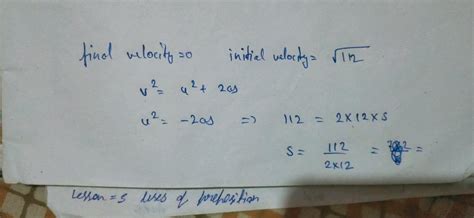 final velocity=0 initial velocity= √112
v² = u² + 2as
u² = -2as => 112 = 2×12×s
s = 112/2×12 = =
Lesson = 5 uses of preposition